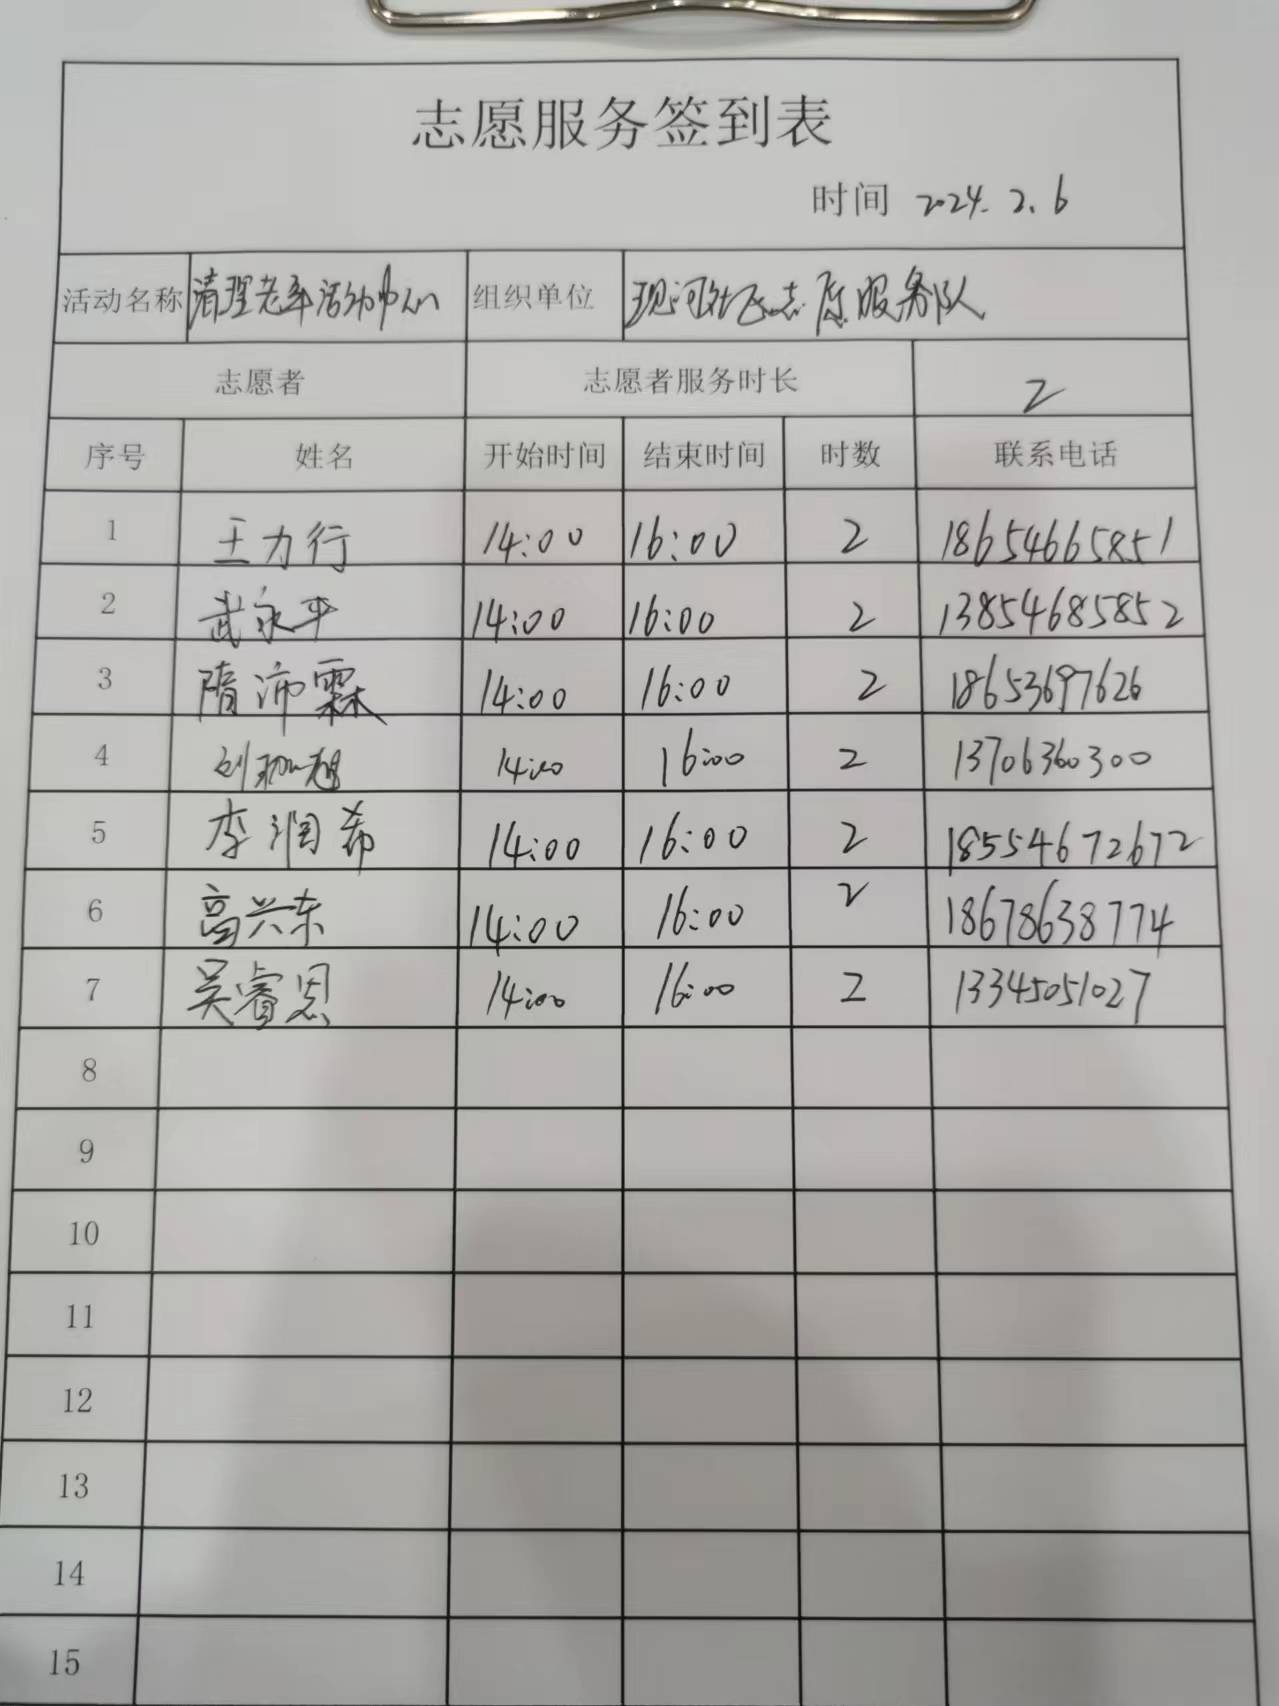 志愿服务签到表
时间 2024.2.6
活动名称 清理老年活动中心 组织单位 现河社区志愿服务队
志愿者 志愿者服务时长 2
序号 姓名 开始时间 结束时间 时数 联系电话
1 王力行 14:00 16:00 2 18654665851
2 武永平 14:00 16:00 2 13854685852
3 隋沛霖 14:00 16:00 2 18653697626
4 14:00 16:00 2 13706360300
5 李润希 14:00 16:00 2 18554672672
6 高兴东 14:00 16:00 2 18678638774
7 吴睿恩 14:00 16:00 2 13345051027
8
9
10
11
12
13
14
15